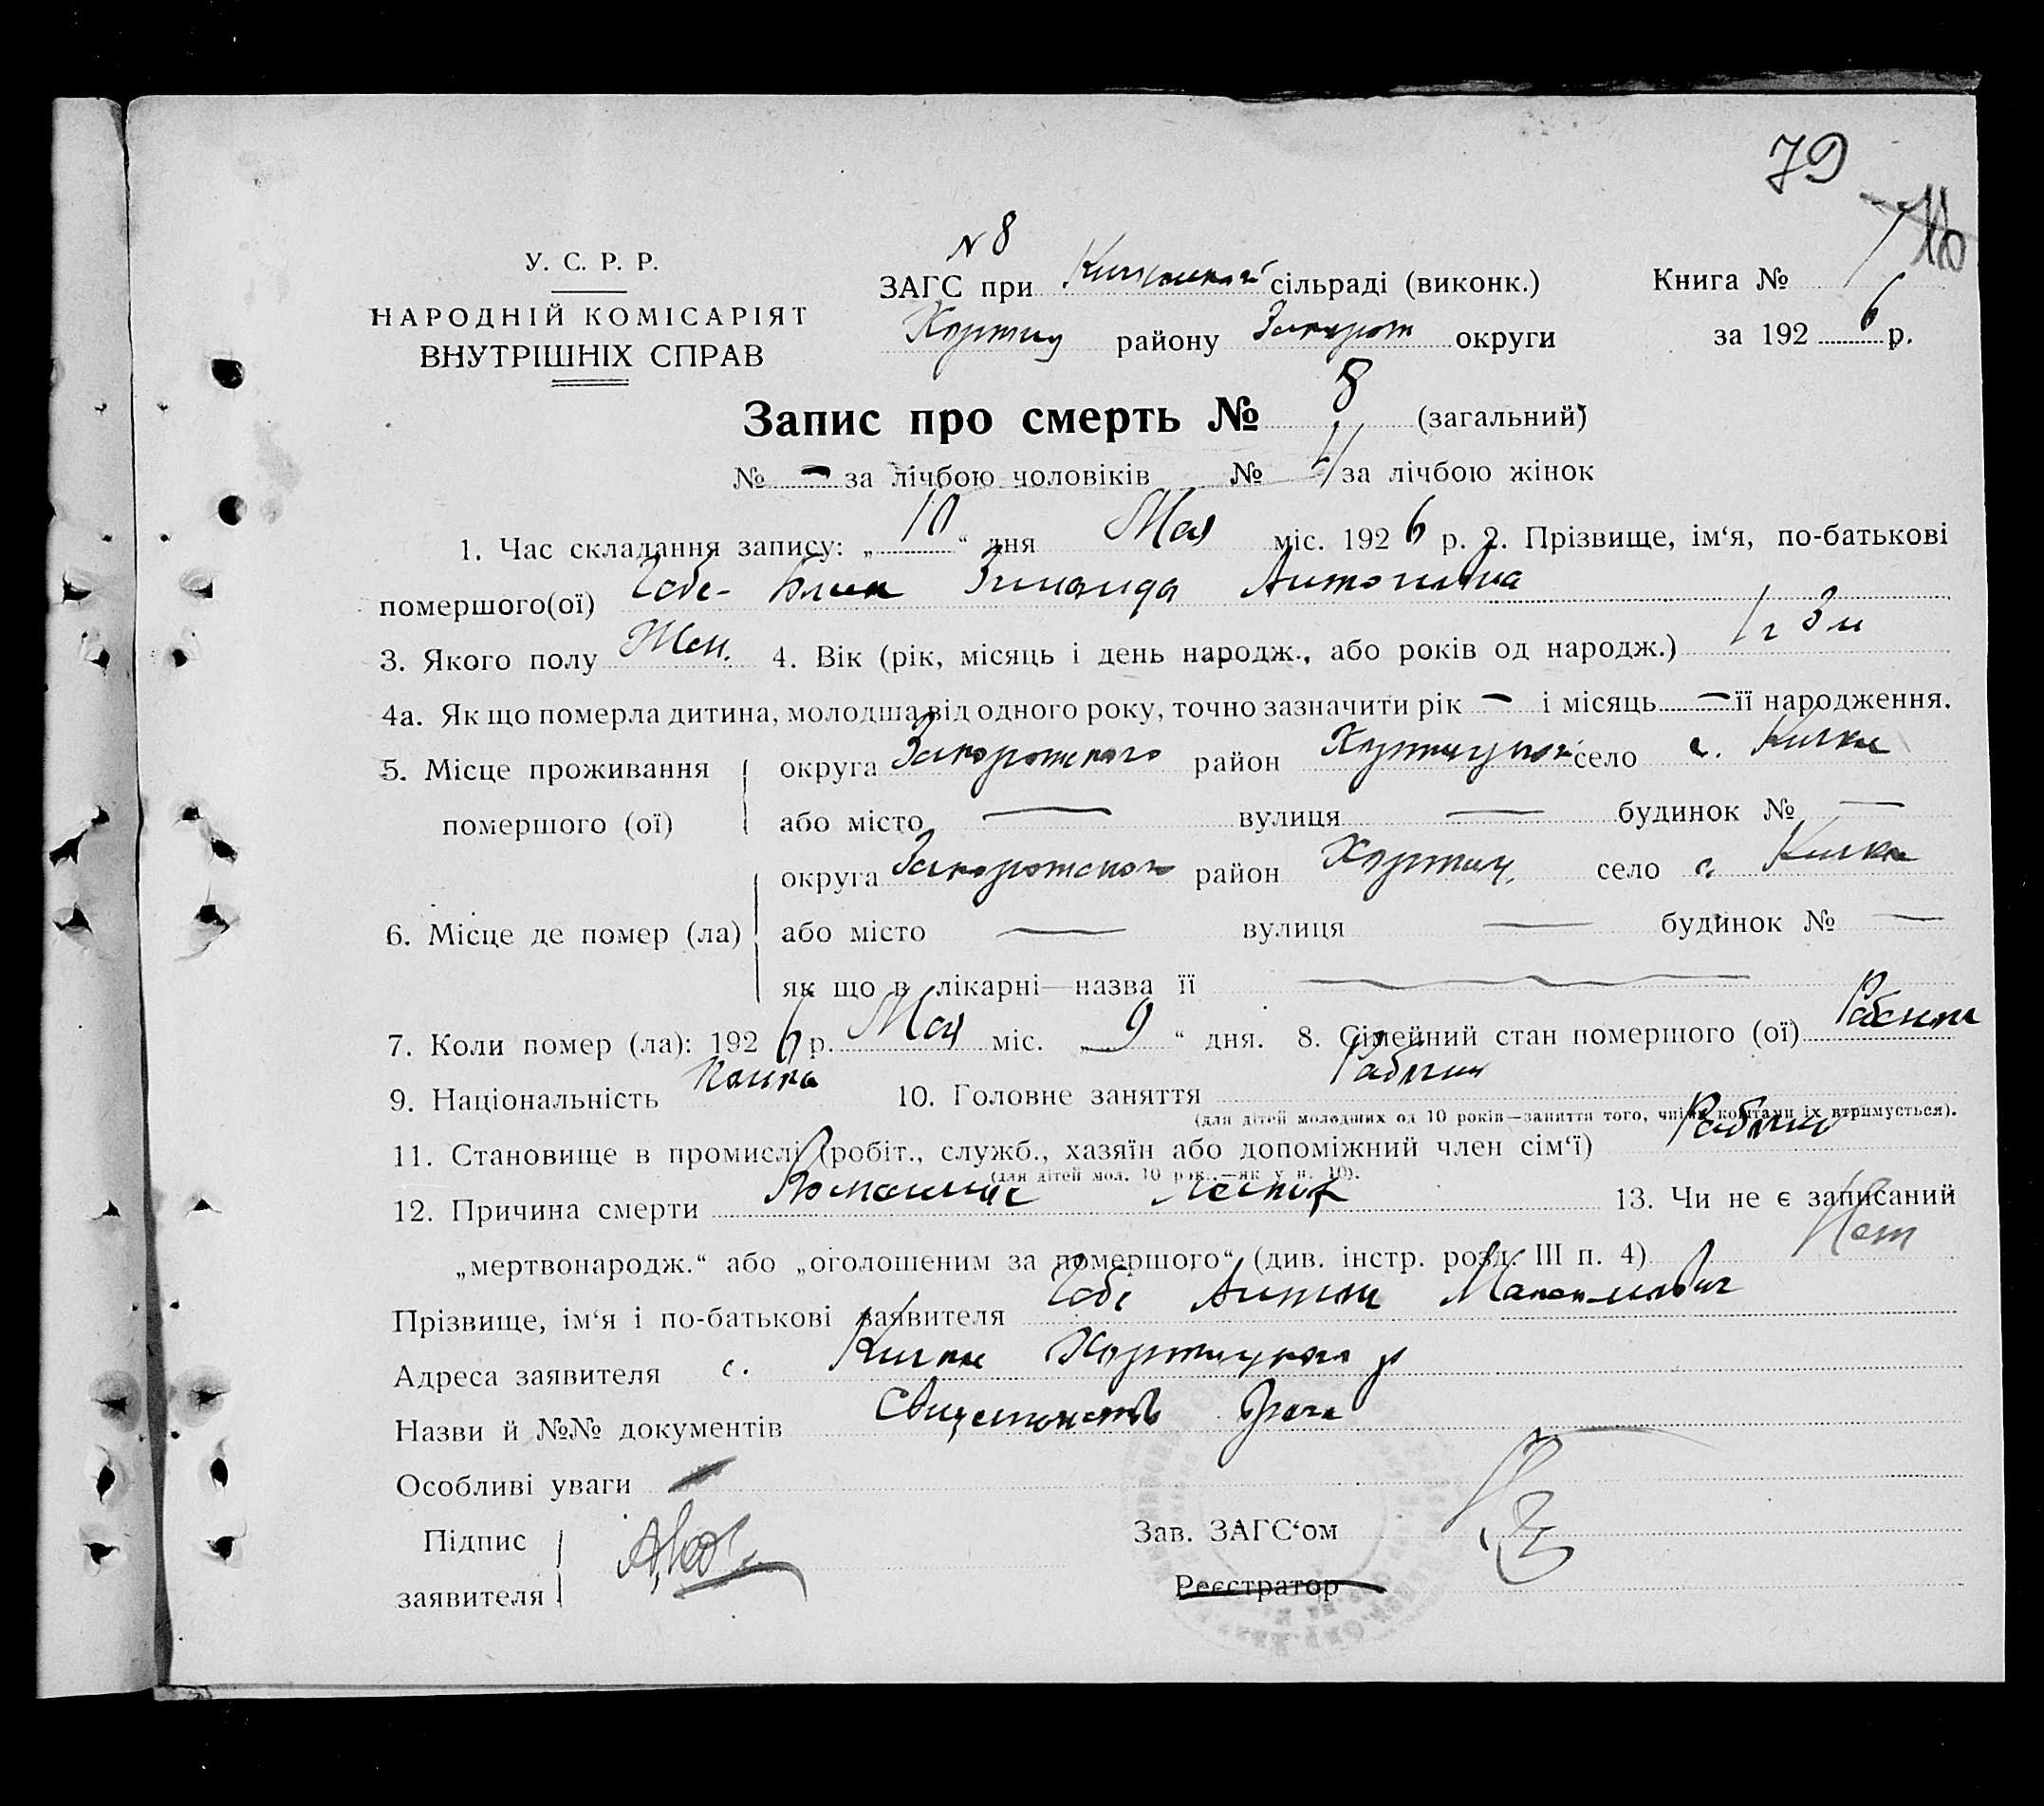 79
№ 8
У. С. Р. Р.
НАРОДНІЙ КОМІСАРІЯТ
ВНУТРІШНІХ СПРАВ
ЗАГС при сільраді (виконк.)
Хортиц району Запорож округи
Книга № 1
за 1926 р.
Запис про смерть № 8 (загальний)
№ - за лічбою чоловіків № 4 за лічбою жінок
1. Час складання запису: „10“ дня Мая міс. 1926 р. 2. Прізвище, ім‘я, по-батькові
помершого(ої) Зинаида Антоновна
3. Якого полу Жен. 4. Вік (рік, місяць і день народж., або років од народж.) 1 г 3 м
4а. Як що померла дитина, молодша від одного року, точно зазначити рік — і місяць — її народження.
5. Місце проживання
помершого (ої)
округа Запорожского район Хортицкой село с. Кичкас
або місто — вулиця — будинок № —
6. Місце де помер (ла)
округа Запорожского район Хортиц. село с. Кичкас
або місто — вулиця — будинок № —
як що в лікарні—назва її
7. Коли помер (ла): 1926 р. Мая міс. „9“ дня. 8. Сімейний стан помершого (ої)
9. Національність 10. Головне заняття Рабочий
(для дітей молодших од 10 років—заняття того, чиїми коштами їх втримується).
11. Становище в промислі (робіт., служб., хазяїн або допоміжний член сім‘ї) Рабочий
(для дітей мол. 10 рок.—як у п. 10).
12. Причина смерти Воспаление легких 13. Чи не є записаний
„мертвонародж.“ або „оголошеним за помершого“ (див. інстр. розд. III п. 4) Нет
Прізвище, ім‘я і по-батькові заявителя Антон
Адреса заявителя с. Кичкас Хортицкого р
Назви й №№ документів Свидетельство Врача
Особливі уваги
Підпис
заявителя
Зав. ЗАГС‘ом
Реєстратор